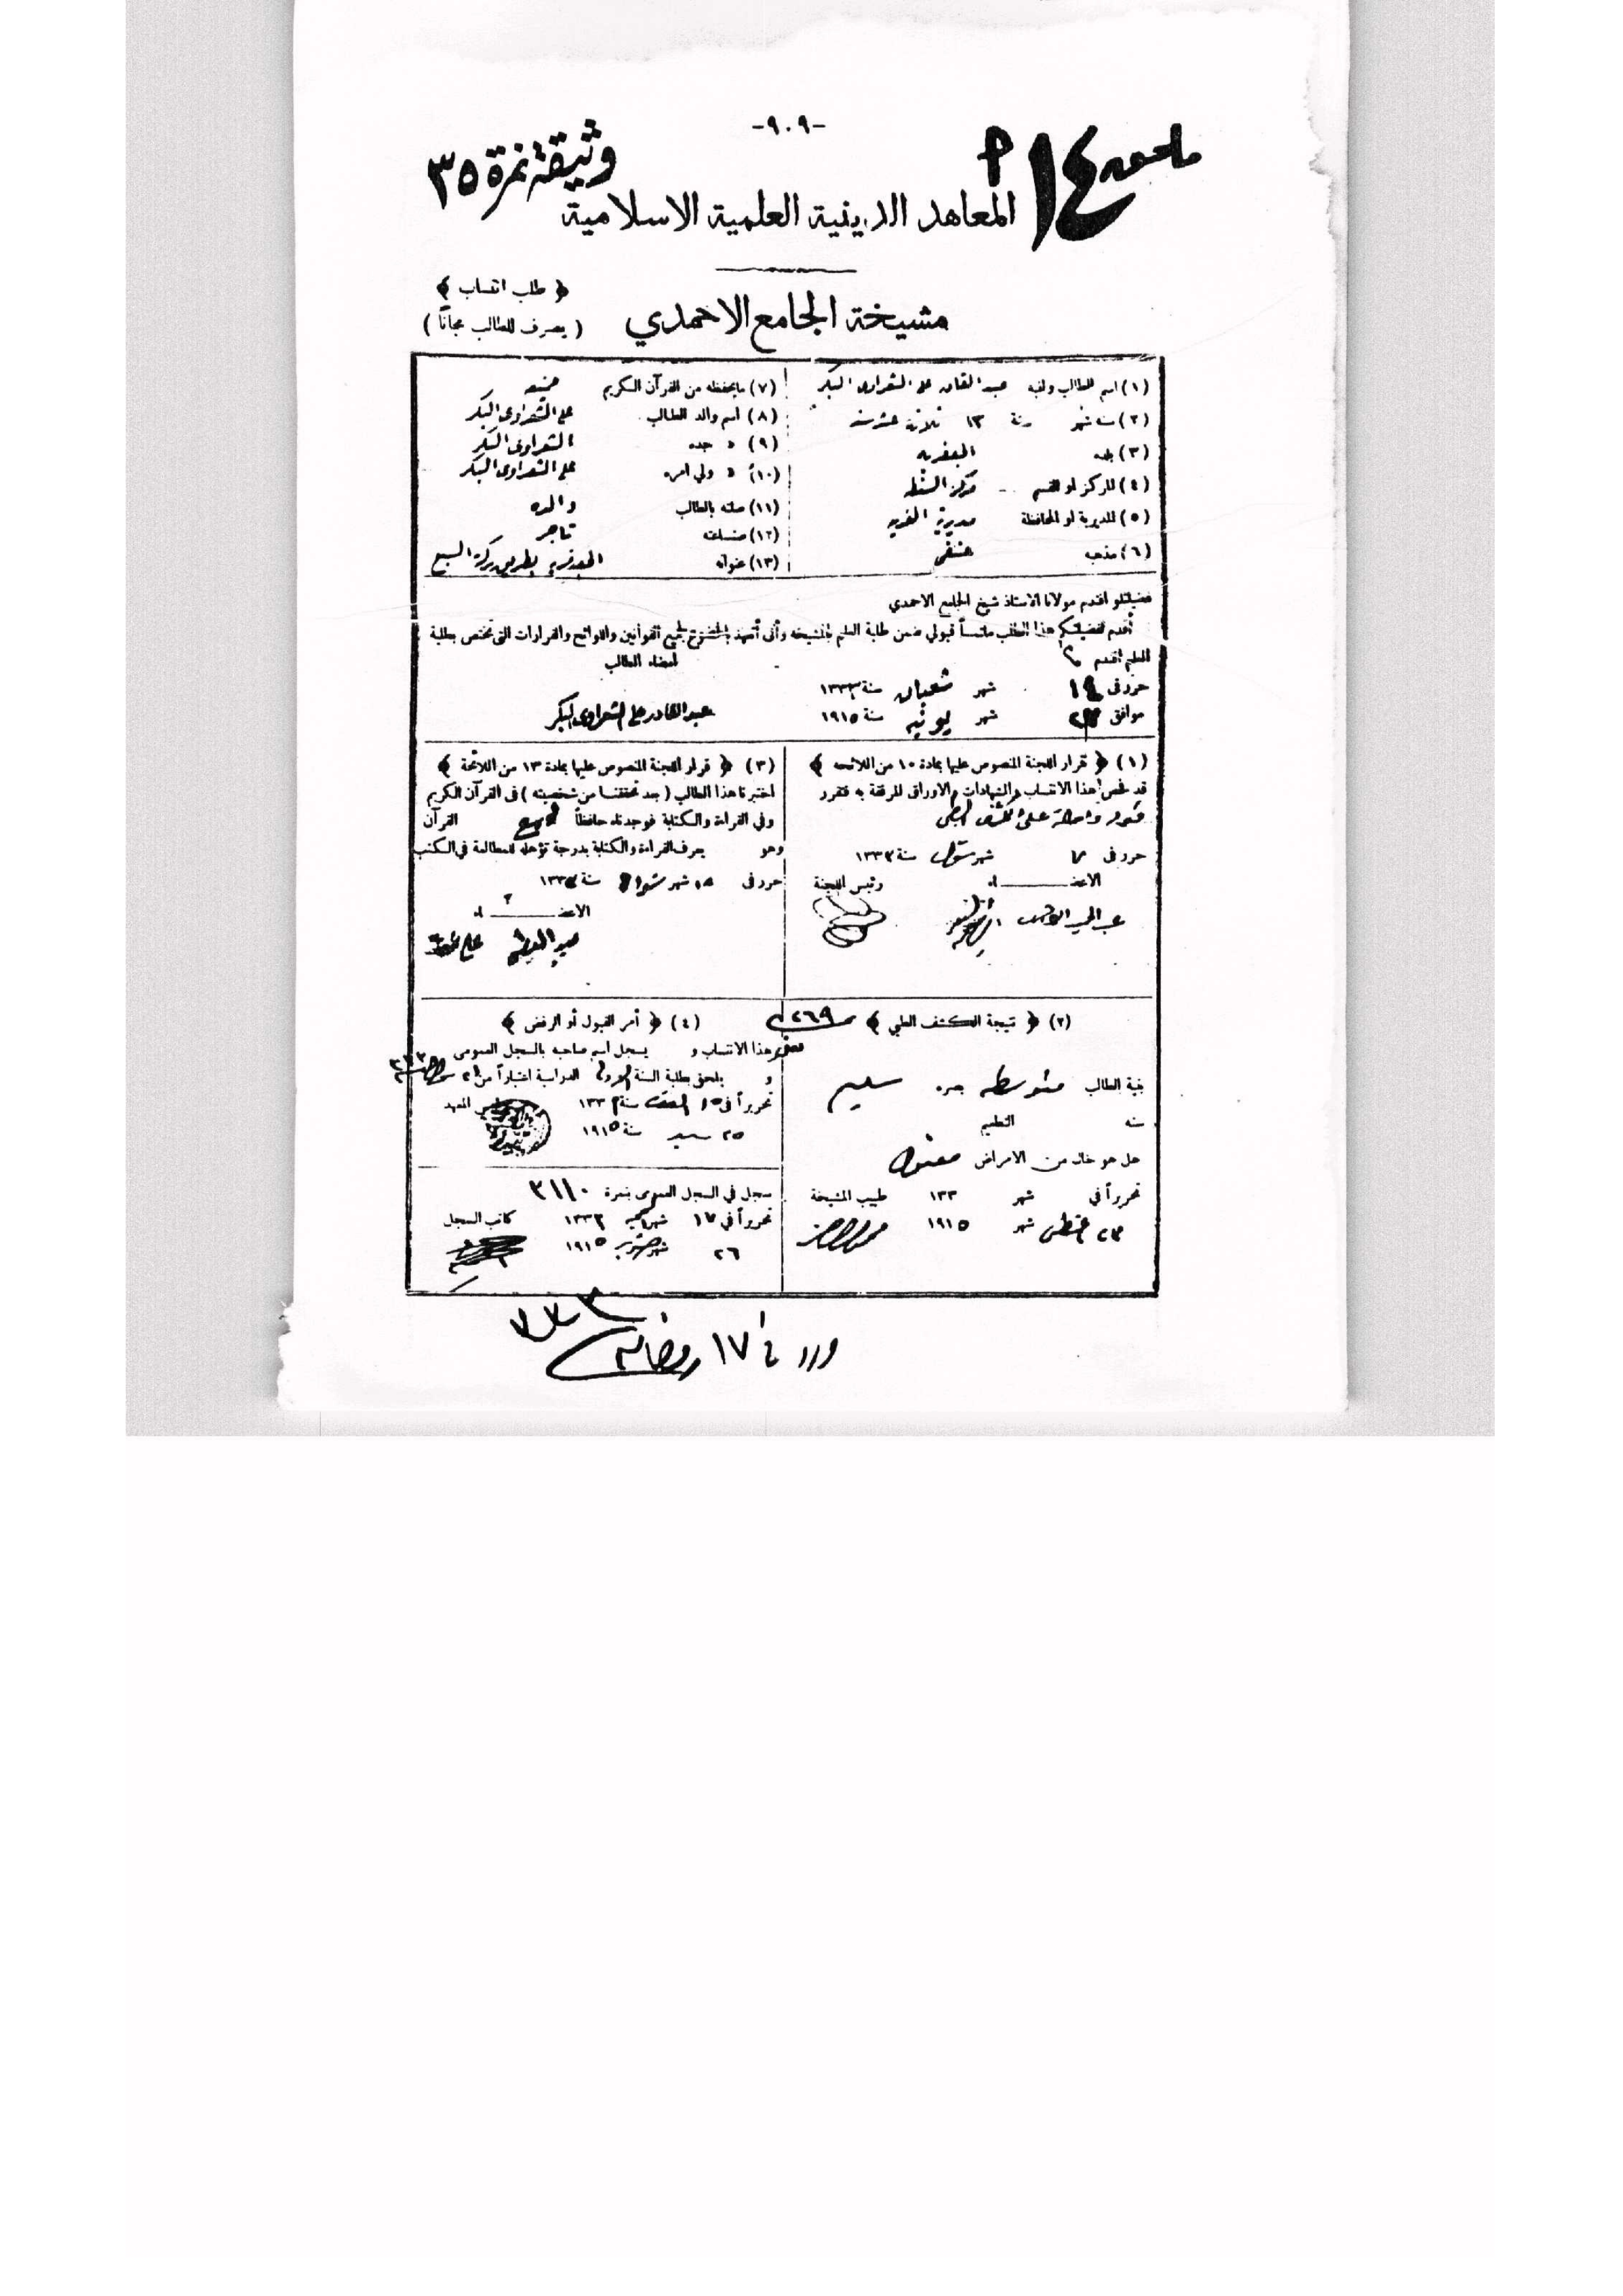 -٩٠٩-
وثيقة نمرة ٣٥
ملحق ١٤
المعاهد الدينية العلمية الاسلامية
مشيخة الجامع الاحمدي
﴿ طلب انتساب ﴾
( يصرف للطالب مجاناً )
(١) اسم الطالب ولقبه عبد القادر على الشعراوى البكر
(٢) سنه شهر سنة ١٣ ثلاثة عشر سنة
(٣) بلده الجعفريه
(٤) المركز او القسم مركز السنطه
(٥) المديرية او المحافظة مديرية الغربيه
(٦) مذهبه حنفى
(٧) ما يحفظه من القرآن الكريم جميعه
(٨) اسم والد الطالب على الشعراوى البكر
(٩) » جده الشعراوى البكر
(١٠) » ولي امره على الشعراوى البكر
(١١) صلته بالطالب والده
(١٢) صناعته تاجر
(١٣) عنوانه الجعفريه بطريق بركة السبع
فضيلتلو افندم مولانا الاستاذ شيخ الجامع الاحمدي
أقدم لفضيلتكم هذا الطلب ملتمساً قبولي ضمن طلبة العلم بالمشيخه وأنى أتعهد بالخضوع لجميع القوانين واللوائح والقرارات التى تختص بطلبة
العلم افندم
امضاء الطالب
حرر فى شهر شعبان سنة ١٣٣٣
موافق شهر يونيه سنة ١٩١٥
عبد القادر على الشعراوى البكر
(١) ﴿ قرار اللجنة المنصوص عليها بمادة ١٠ من اللائحه ﴾
قد فحص هذا الانتساب والشهادات والاوراق المرفقة به فتقرر
قبوله واحالته على الكشف الطبى
حرر فى ٧ شهر شوال سنة ١٣٣٣
الاعضاء رئيس اللجنة
(٣) ﴿ قرار اللجنة المنصوص عليها بمادة ١٣ من اللائحة ﴾
اختبرنا هذا الطالب ( بعد تحققنا من شخصيته ) فى القرآن الكريم
وفي القراءة والكتابة فوجدناه حافظاً لجميع القرآن
وهو يعرف القراءة والكتابة بدرجة تؤهله للمطالعة فى الكتب
حرر فى شهر شوال سنة ١٣٣٣
الاعضاء
(٢) ﴿ نتيجة الكشف الطبي ﴾ ٢٦٩
بنية الطالب متوسطه بصره سليم
سنه التطعيم
هل هو خال من الامراض مقبول
تحريراً فى شهر ١٣٣ طبيب المشيخة
٢٣ اغسطس شهر ١٩١٥
(٤) ﴿ أمر القبول أو الرفض ﴾
هذا الانتساب و يسجل اسم صاحبه بالسجل العمومى
و يلحق بطلبة السنة الاولى الدراسية اعتباراً من
تحريراً فى ١٥ القعدة سنة ١٣٣٣ المعهد
٢٥ سنة ١٩١٥
سجل في السجل العمومى بنمرة ٣١١٠
تحريراً فى ١٧ شهر ١٣٣٣ كاتب السجل
٢٦ شهر ١٩١٥
ورد فى ١٧ رمضان ٣٣٣